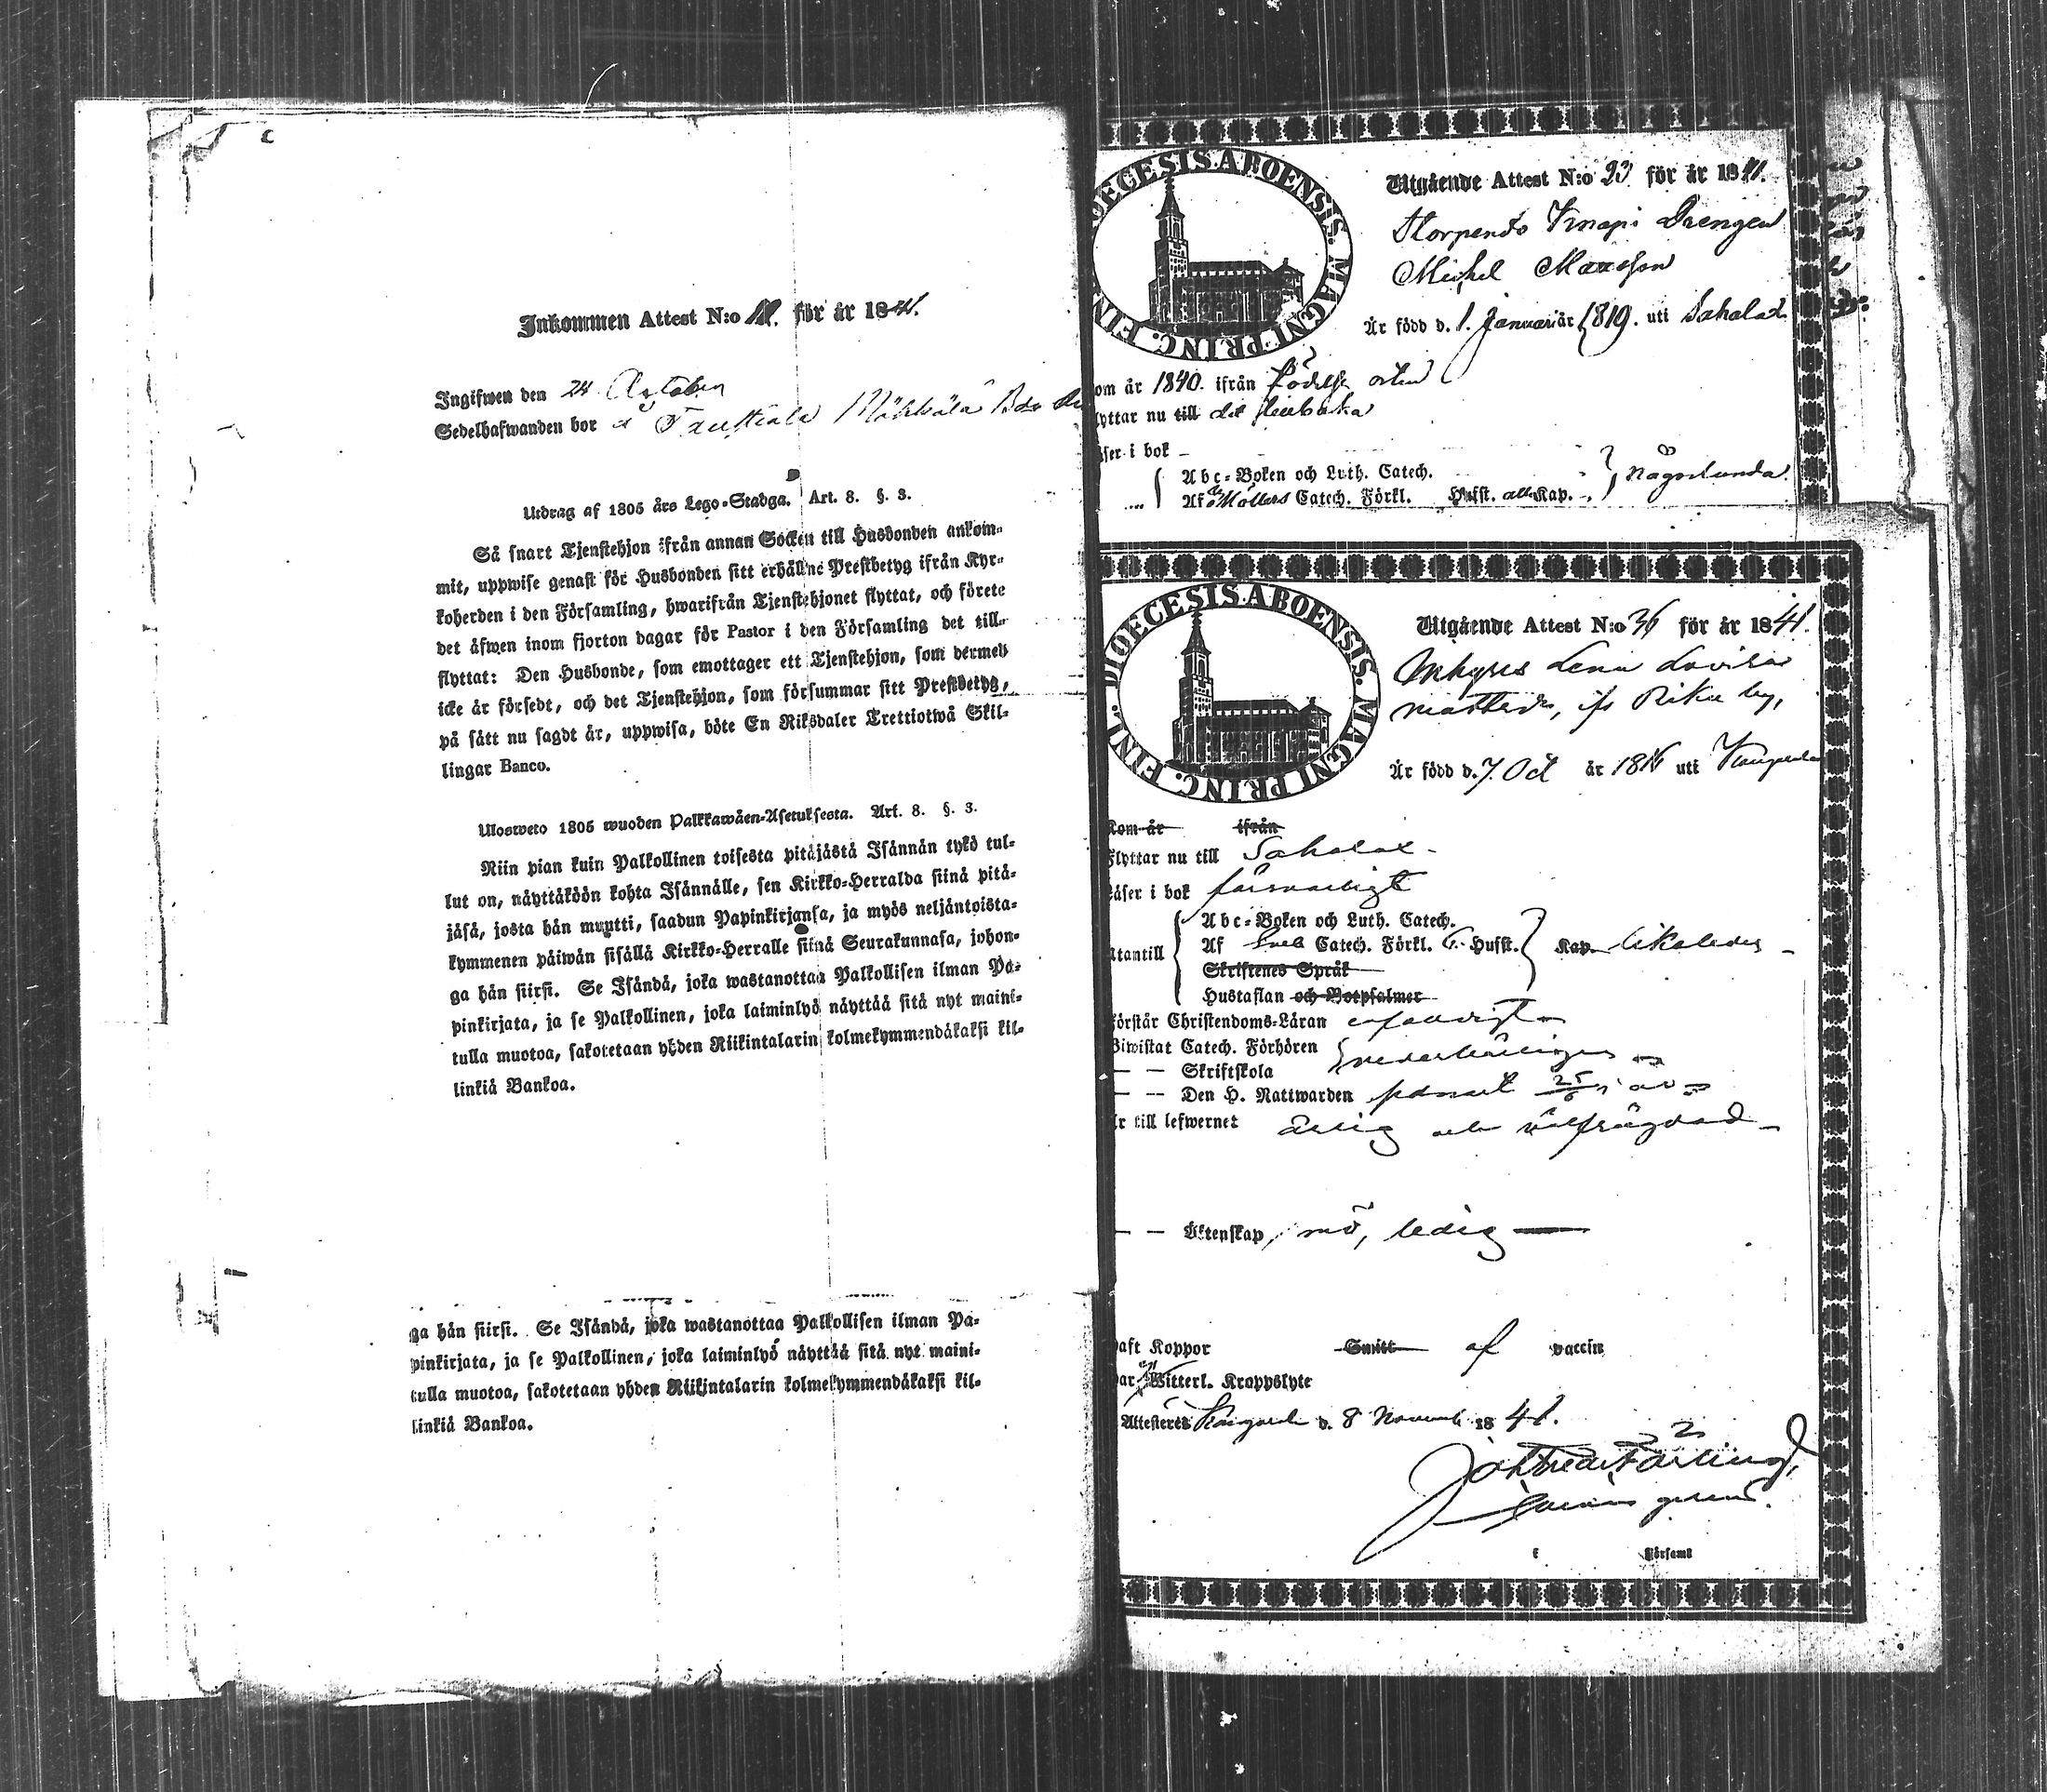 Inkommen Attest N:o för år 1841.
Ingifwen den 24 October
Sedelhafwanden bor
Utdrag af 1805 års Lego-Stadga. Art. 8. §. 3.
Så snart Tjenstehjon ifrån annan Socken till Husbonden ankom-
mit, uppwise genast för Husbonden sitt erhållne Prestbetyg ifrån Kyr-
koherden i den Församling, hwarifrån Tjenstehjonet flyttat, och förete
det äfwen inom fjorton dagar för Pastor i den Församling det till-
flyttat: Den Husbonde, som emottager ett Tjenstehjon, som dermed
icke är försedt, och det Tjenstehjon, som försummar sitt Prestbetyg,
på sätt nu sagdt är, uppwisa, böte En Riksdaler Trettiotwå Skil-
lingar Banco.
Ulosweto 1805 wuoden Palkkawäen-Asetuksesta. Art. 8. §. 3.
Niin pian kuin Palkollinen toisesta pitäjästä Isännän tykö tul-
lut on, näyttäköön kohta Isännälle, sen Kirkko-Herralda siinä pitä-
jäsä, josta hän muutti, saadun Papinkirjansa, ja myös neljäntoista-
kymmenen päiwän sisällä Kirkko-Herralle siinä Seurakunnasa, johon-
ga hän siirsi. Se Isändä, joka wastanottaa Palkollisen ilman Pa-
pinkirjata, ja se Palkollinen, joka laiminlyö näyttää sitä nyt maini-
tulla muotoa, sakotetaan yhden Riikintalarin kolmekymmendäkaksi kil-
linkiä Bankoa.
ga hän siirsi. Se Isändä, joka wastanottaa Palkollisen ilman Pa-
pinkirjata, ja se Palkollinen, joka laiminlyö näyttää sitä nyt maini-
tulla muotoa, sakotetaan yhden Riikintalarin kolmekymmendäkaksi kil-
linkiä Bankoa.
DIOECESIS ABOENSIS. MAGNI PRINC. FIN
Utgående Attest N:o 23 för år 1841.
Drengen
Michel Mattsson
Är född d. 1. Januari år 1819. uti Sahalax
om år 1840. ifrån födelse orten
lyttar nu till
äser i bok
Abc-Boken och Luth. Catech.
Af Möllers Catech. Förkl. Hufst. alla Kap. någorlunda
DIOECESIS ABOENSIS. MAGNI PRINC. FINL.
Utgående Attest N:o 36 för år 1841.
Lena Lovisa
Är född d. 7 Oct år 18 uti
Kom år ifrån
Flyttar nu till Sahalax
Läser i bok försvarligt
Abc-Boken och Luth. Catech.
Utantill Af Catech. Förkl. 6. Hufst. Kap. likaledes
Skriftenes Språk
Hustaflan och Botpsalmer
Förstår Christendoms-Läran
Biwistat Catech. Förhören
— — Skriftskola
— — Den H. Nattwarden
Är till lefwernet ärlig och välfrägdad
— — Äktenskap, mö, ledig
Haft Koppor Smitt af vaccin
Har Witterl. Kroppslyte
Attesteres d. 8 Novemb 1841.
Församl